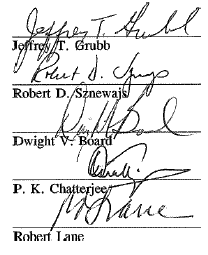 Jeffrey T. Grubb
Jeffrey T. Grubb
Robert D. Sznewajs
Dwight V. Board
P. K. Chatterjee
Robert Lane